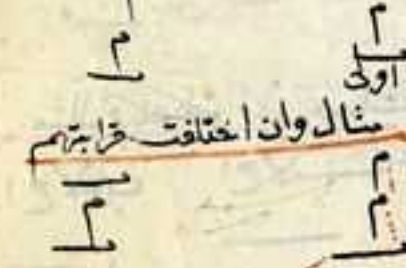 م م
اولى
مثال وان اختلفت قرابتهم
م م